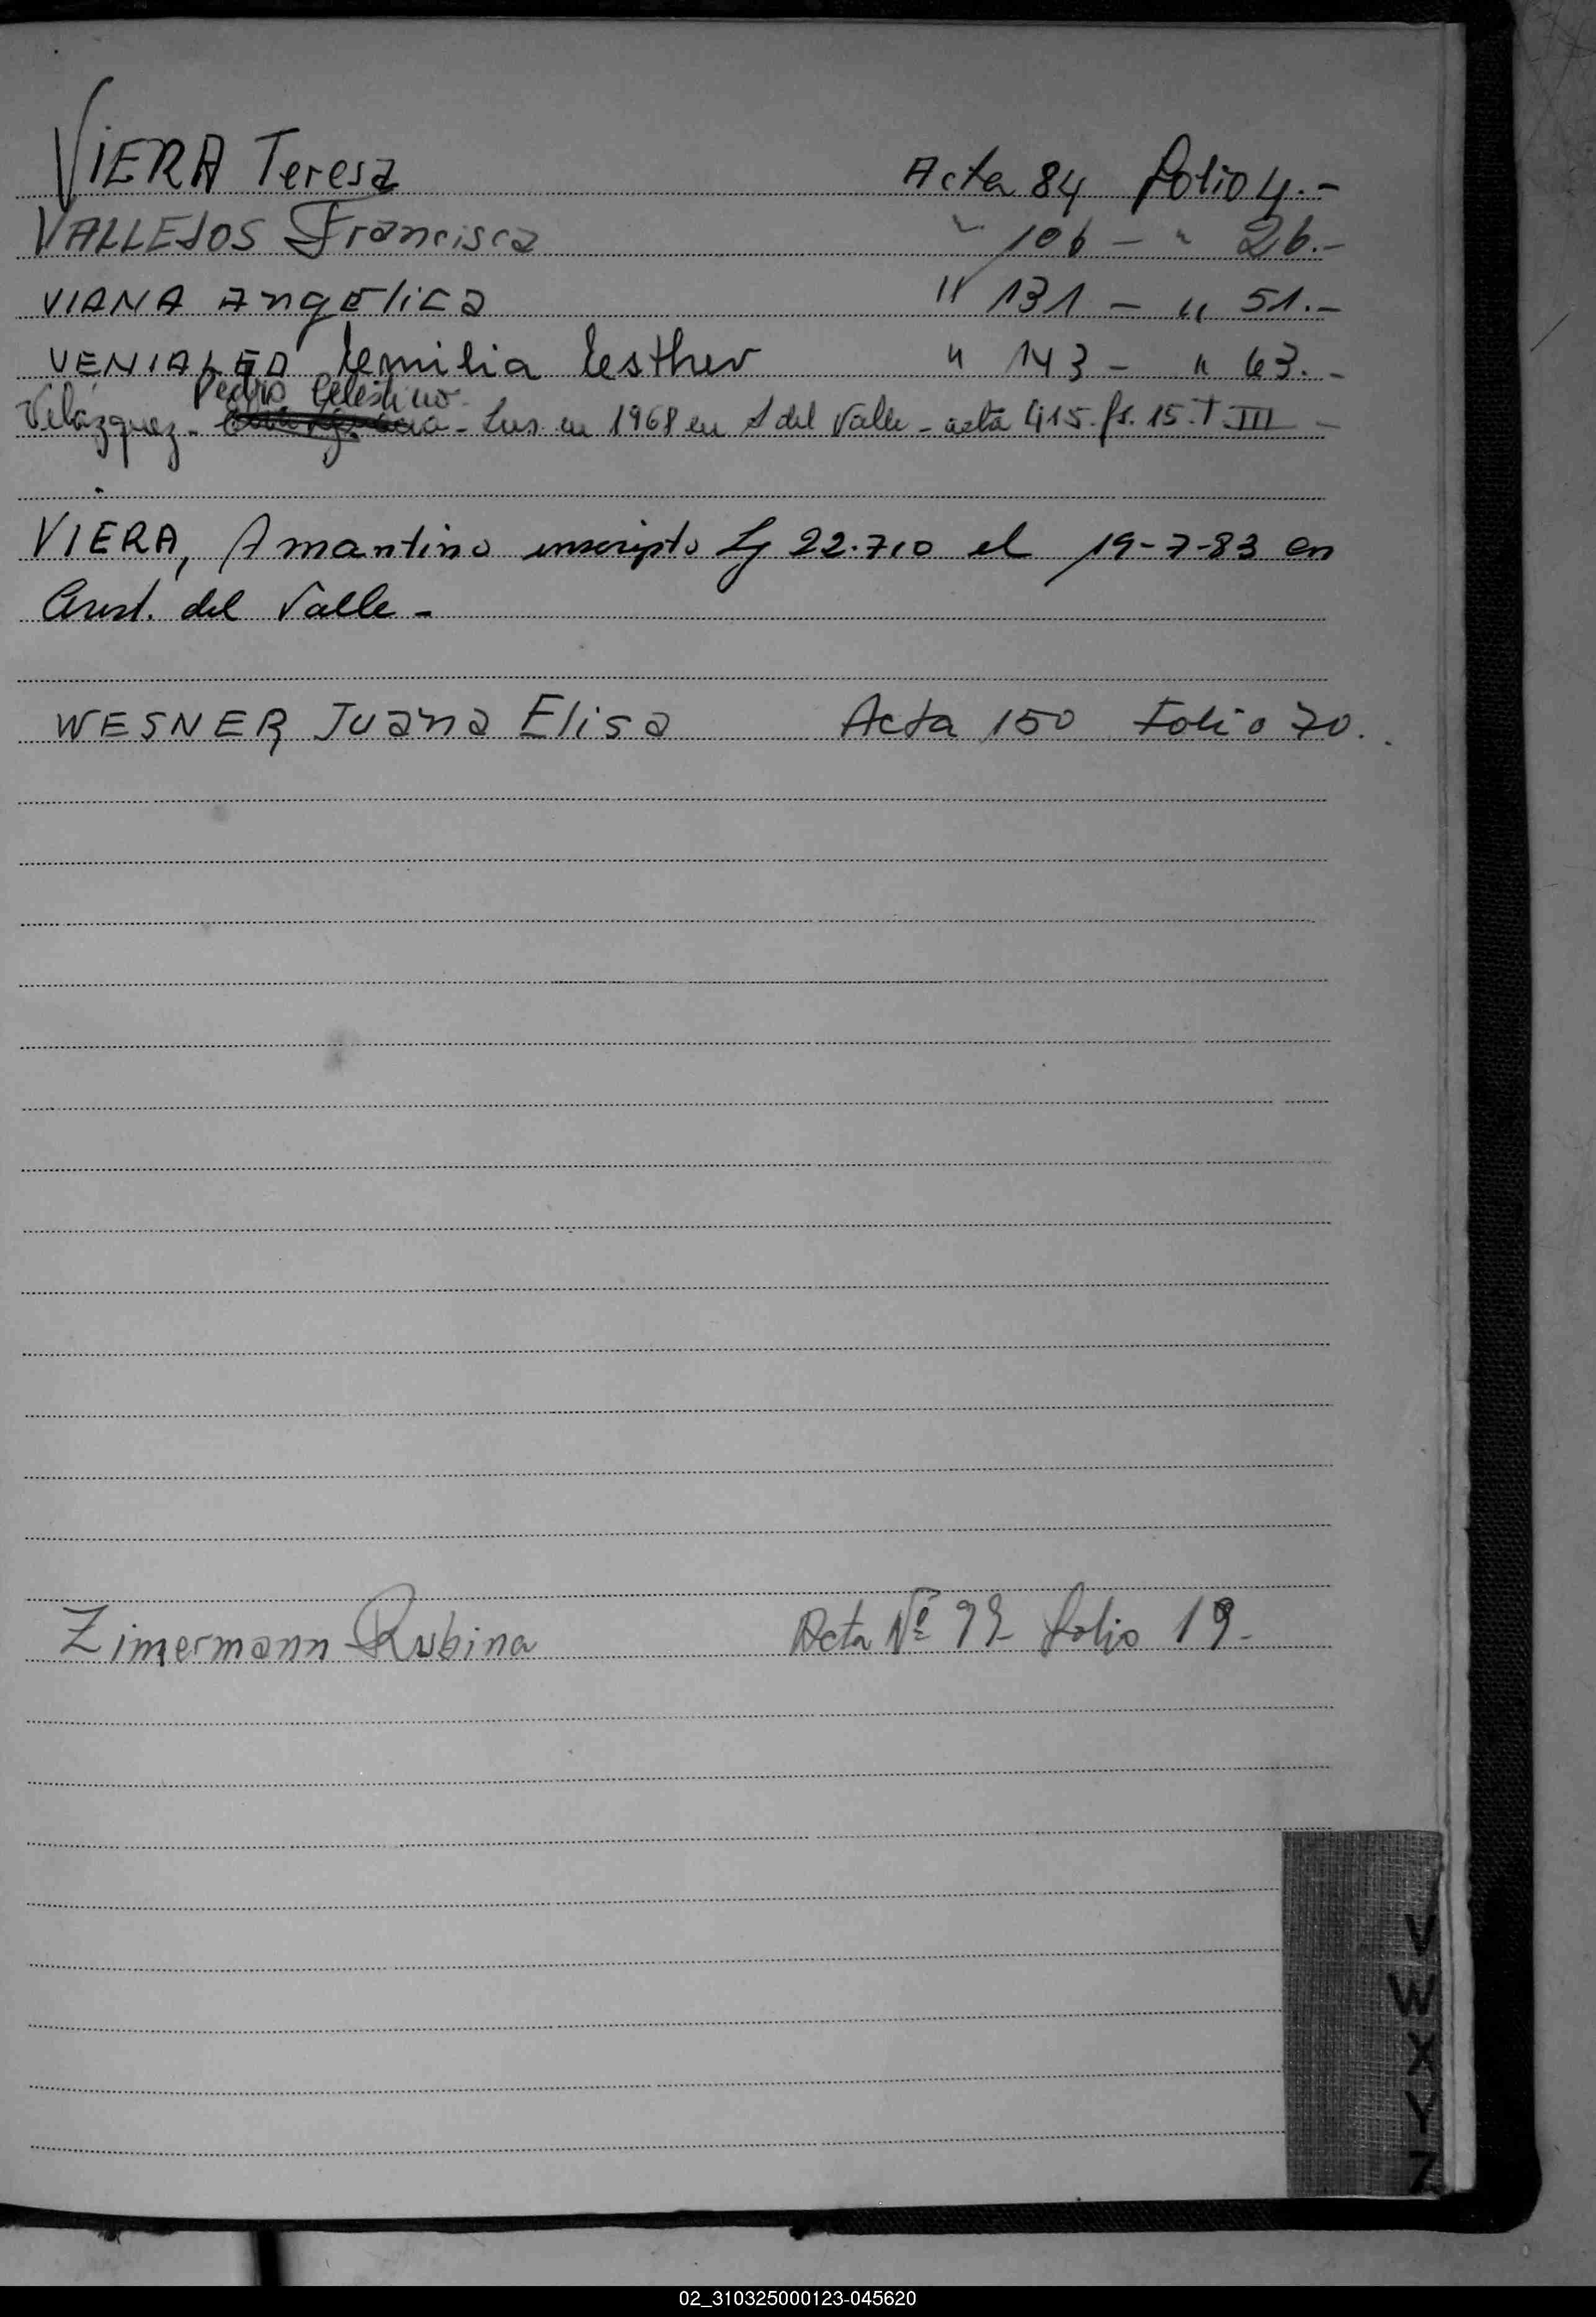 VIERA Teresa Acta 84 folio 4.-
VALLEJOS Francisca " 106 - " 26.-
VIANA Angelica " 131 - " 51.-
VENIALGO Eemilia Eesther " 143 - " 63.-
Pedro Celestino
Velázquez - Ins. en 1968 en A del Valle - acta 415. fs. 15. T III -
VIERA, Amantino inscripto Lj 22.710 el 19-7-83 en
Arist. del Valle -
WESNER Juana Elisa Acta 150 Folio 70.
Zimermann Rubina Acta Nº 99 folio 19-
V
W
X
Y
Z
02_310325000123-045620